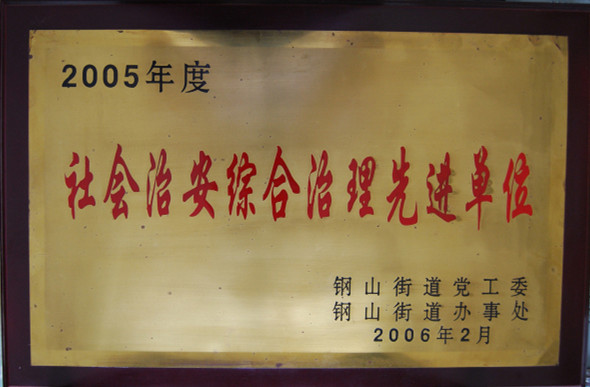 2005年度
社会治安综合治理先进单位
钢山街道党工委
钢山街道办事处
2006年2月